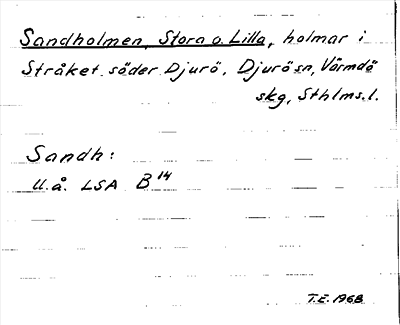 Sandholmen, Stora o. Lilla, holmar i
Stråket söder Djurö. Djurö sn, Värmdö
skg, Sthlms. l.
Sandh:
U.å. LSA B 14
T.E. 1968